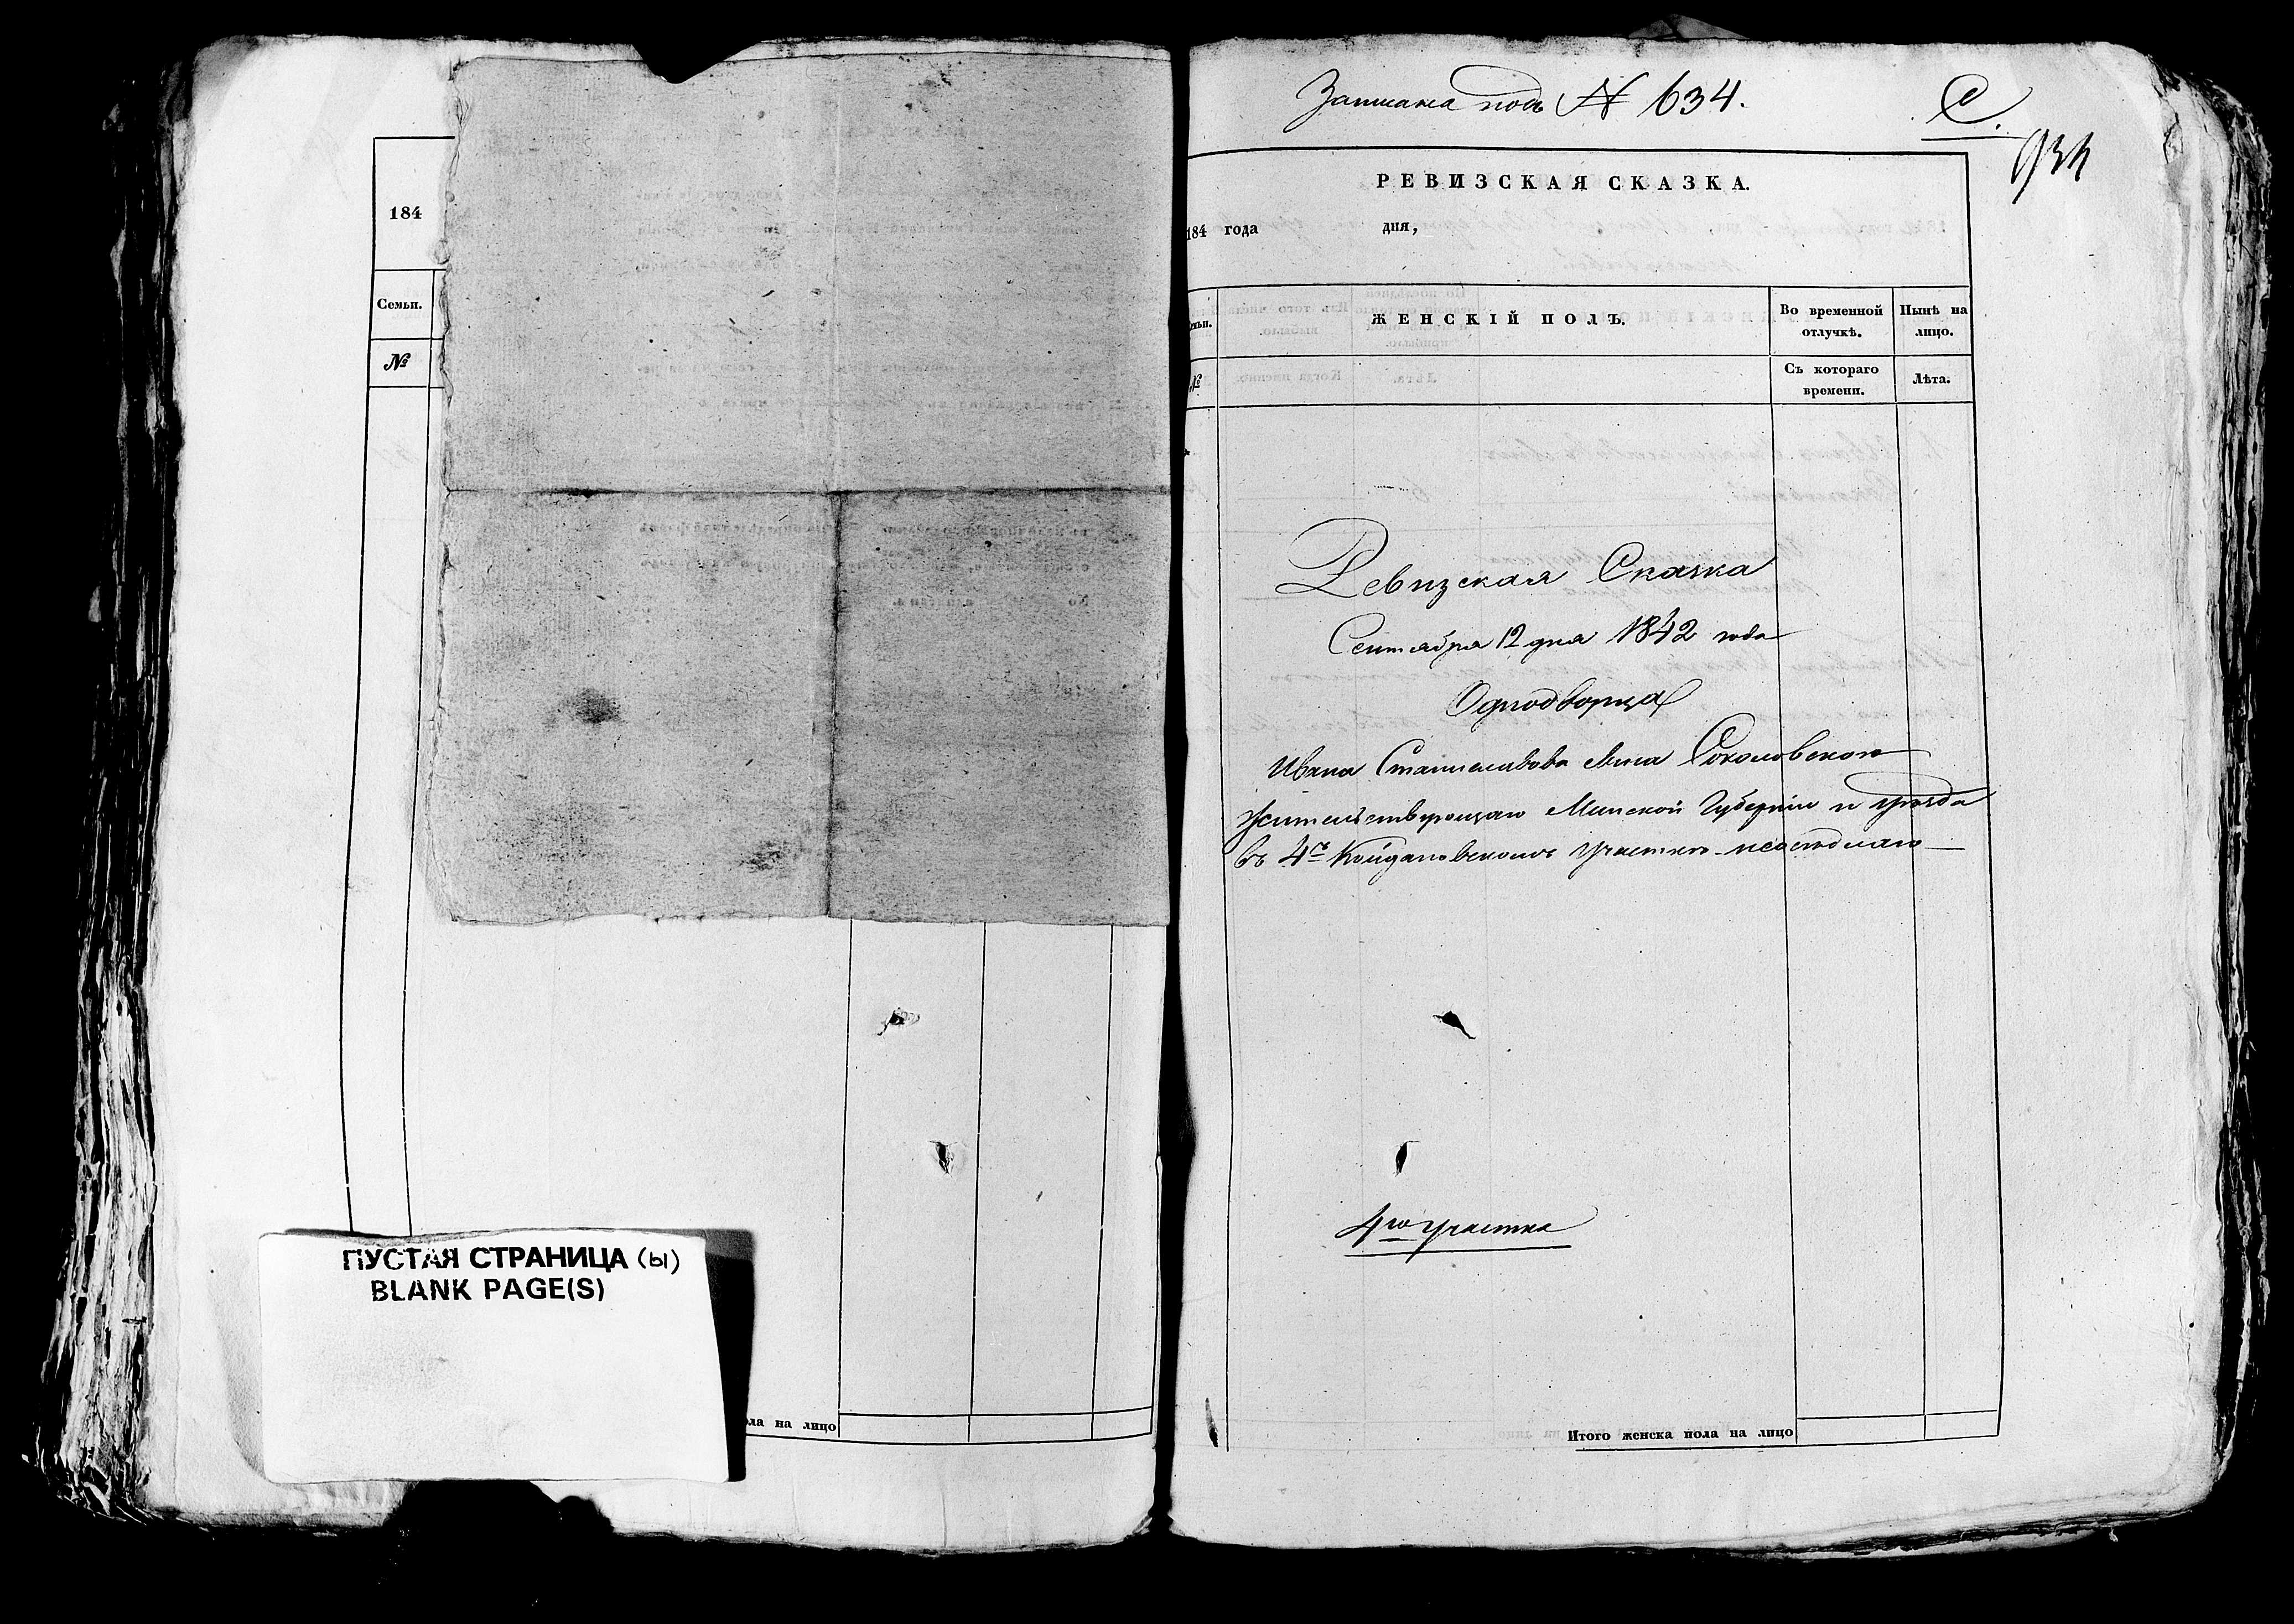 184
Семьи.
№
ПУСТАЯ СТРАНИЦА (ы)
BLANK PAGE(S)
ола на лицо
Записана подъ № 634.
С.
934
РЕВИЗСКАЯ СКАЗКА.
184 года дня,
ЖЕНСКІЙ ПОЛЪ.
Во временной отлучкѣ.
Нынѣ на лицо.
№
Съ котораго времени.
Лѣта.
Ревизская Сказка
Сентября 12 дня 1842 года
Однодворца
Ивана Станиславова сына Соколовскаго
жительствующаго Минской Губерніи и уѣзда
въ 4мъ Койдановскомъ участкѣ неосѣдлаго
4го участка
Итого женска пола на лицо